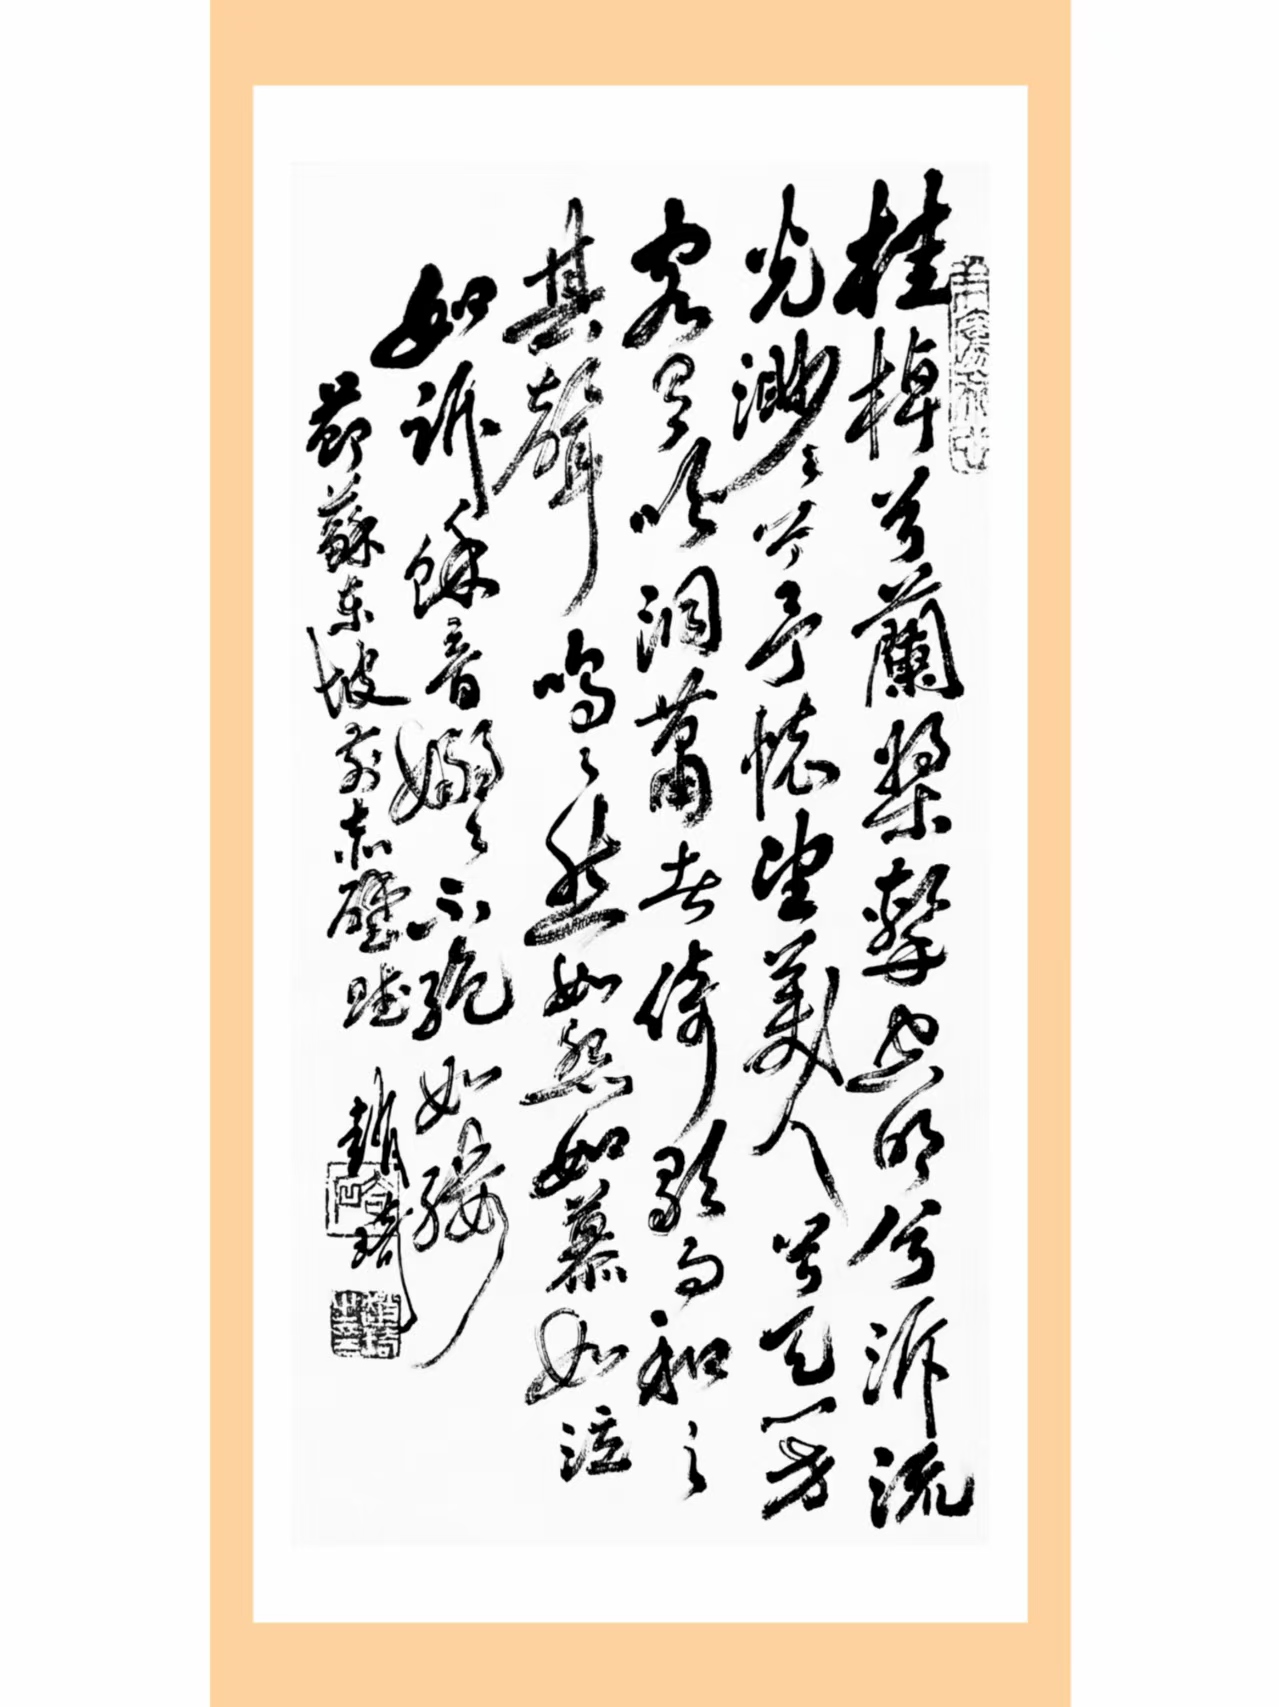 桂棹兮蘭槳擊空明兮泝流
光渺〻兮予懷望美人兮天一方
客有吹洞蕭者倚歌而和之
其聲鳴〻然如怨如慕如泣
如訴餘音嫋〻不絶如縷
節蘇東坡前赤壁賦
趙琦